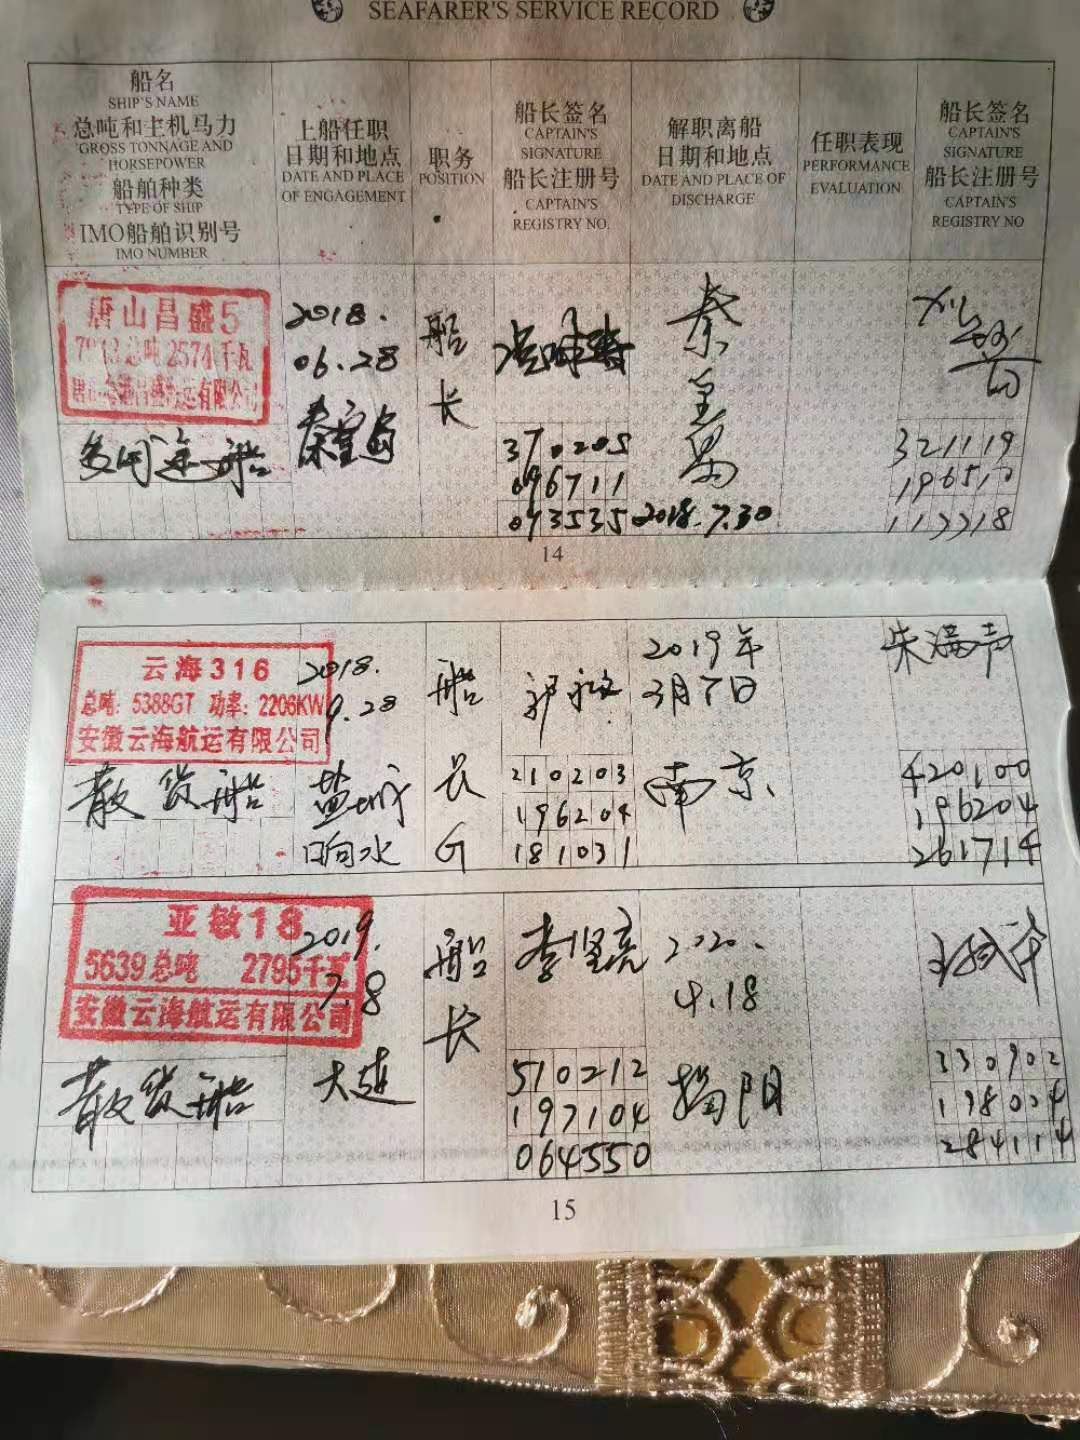 SEAFARER'S SERVICE RECORD
船名
SHIP'S NAME
总吨和主机马力
GROSS TONNAGE AND
HORSEPOWER
船舶种类
TYPE OF SHIP
IMO船舶识别号
IMO NUMBER
上船任职
日期和地点
DATE AND PLACE
OF ENGAGEMENT
职务
POSITION
船长签名
CAPTAIN'S
SIGNATURE
船长注册号
CAPTAIN'S
REGISTRY NO.
解职离船
日期和地点
DATE AND PLACE OF
DISCHARGE
任职表现
PERFORMANCE
EVALUATION
船长签名
CAPTAIN'S
SIGNATURE
船长注册号
CAPTAIN'S
REGISTRY NO
唐山昌盛5
总吨 2574千瓦
昌盛海运有限公司
多用途船
2018.
06.28
秦皇岛
船
长
370205
096711
093535
秦
皇
岛
2018.7.30
321119
14
云海316
总吨：5388GT 功率：2206KW
安徽云海航运有限公司
散货船
2018.
9.28
盐城
响水
船
长
G
210203
196204
181031
2019年
3月7日
南京
朱满声
420100
196204
261714
亚敏18
5639总吨 2795千瓦
安徽云海航运有限公司
散货船
2019.
7.8
大连
船
长
李坚亮
510212
197104
064550
2020.
4.18
揭阳
330902
284114
15